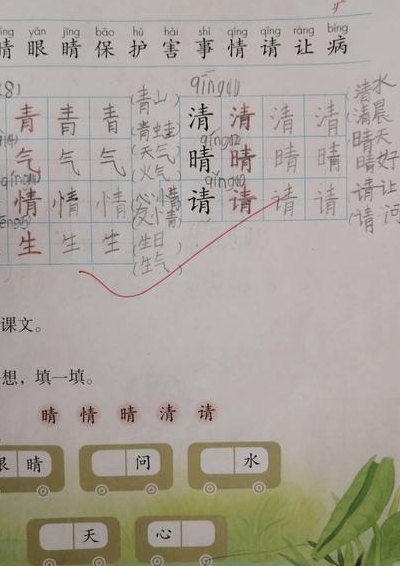 yǎn jīng bǎo hù hài shì qíng qǐng ràng bìng
睛 眼 睛 保 护 害 事 情 请 让 病
青 青 青 青山 青蛙
清 清 清 清 清水 清晨
气 气 气 天气 火气
晴 晴 晴 晴 晴天 晴好
情 情 情 心情
请 请 请 请 请让 请问
生 生 生 生日 生气
课文。
想，填一填。
睛 情 晴 清 请
眼 睛 问 水
天 心